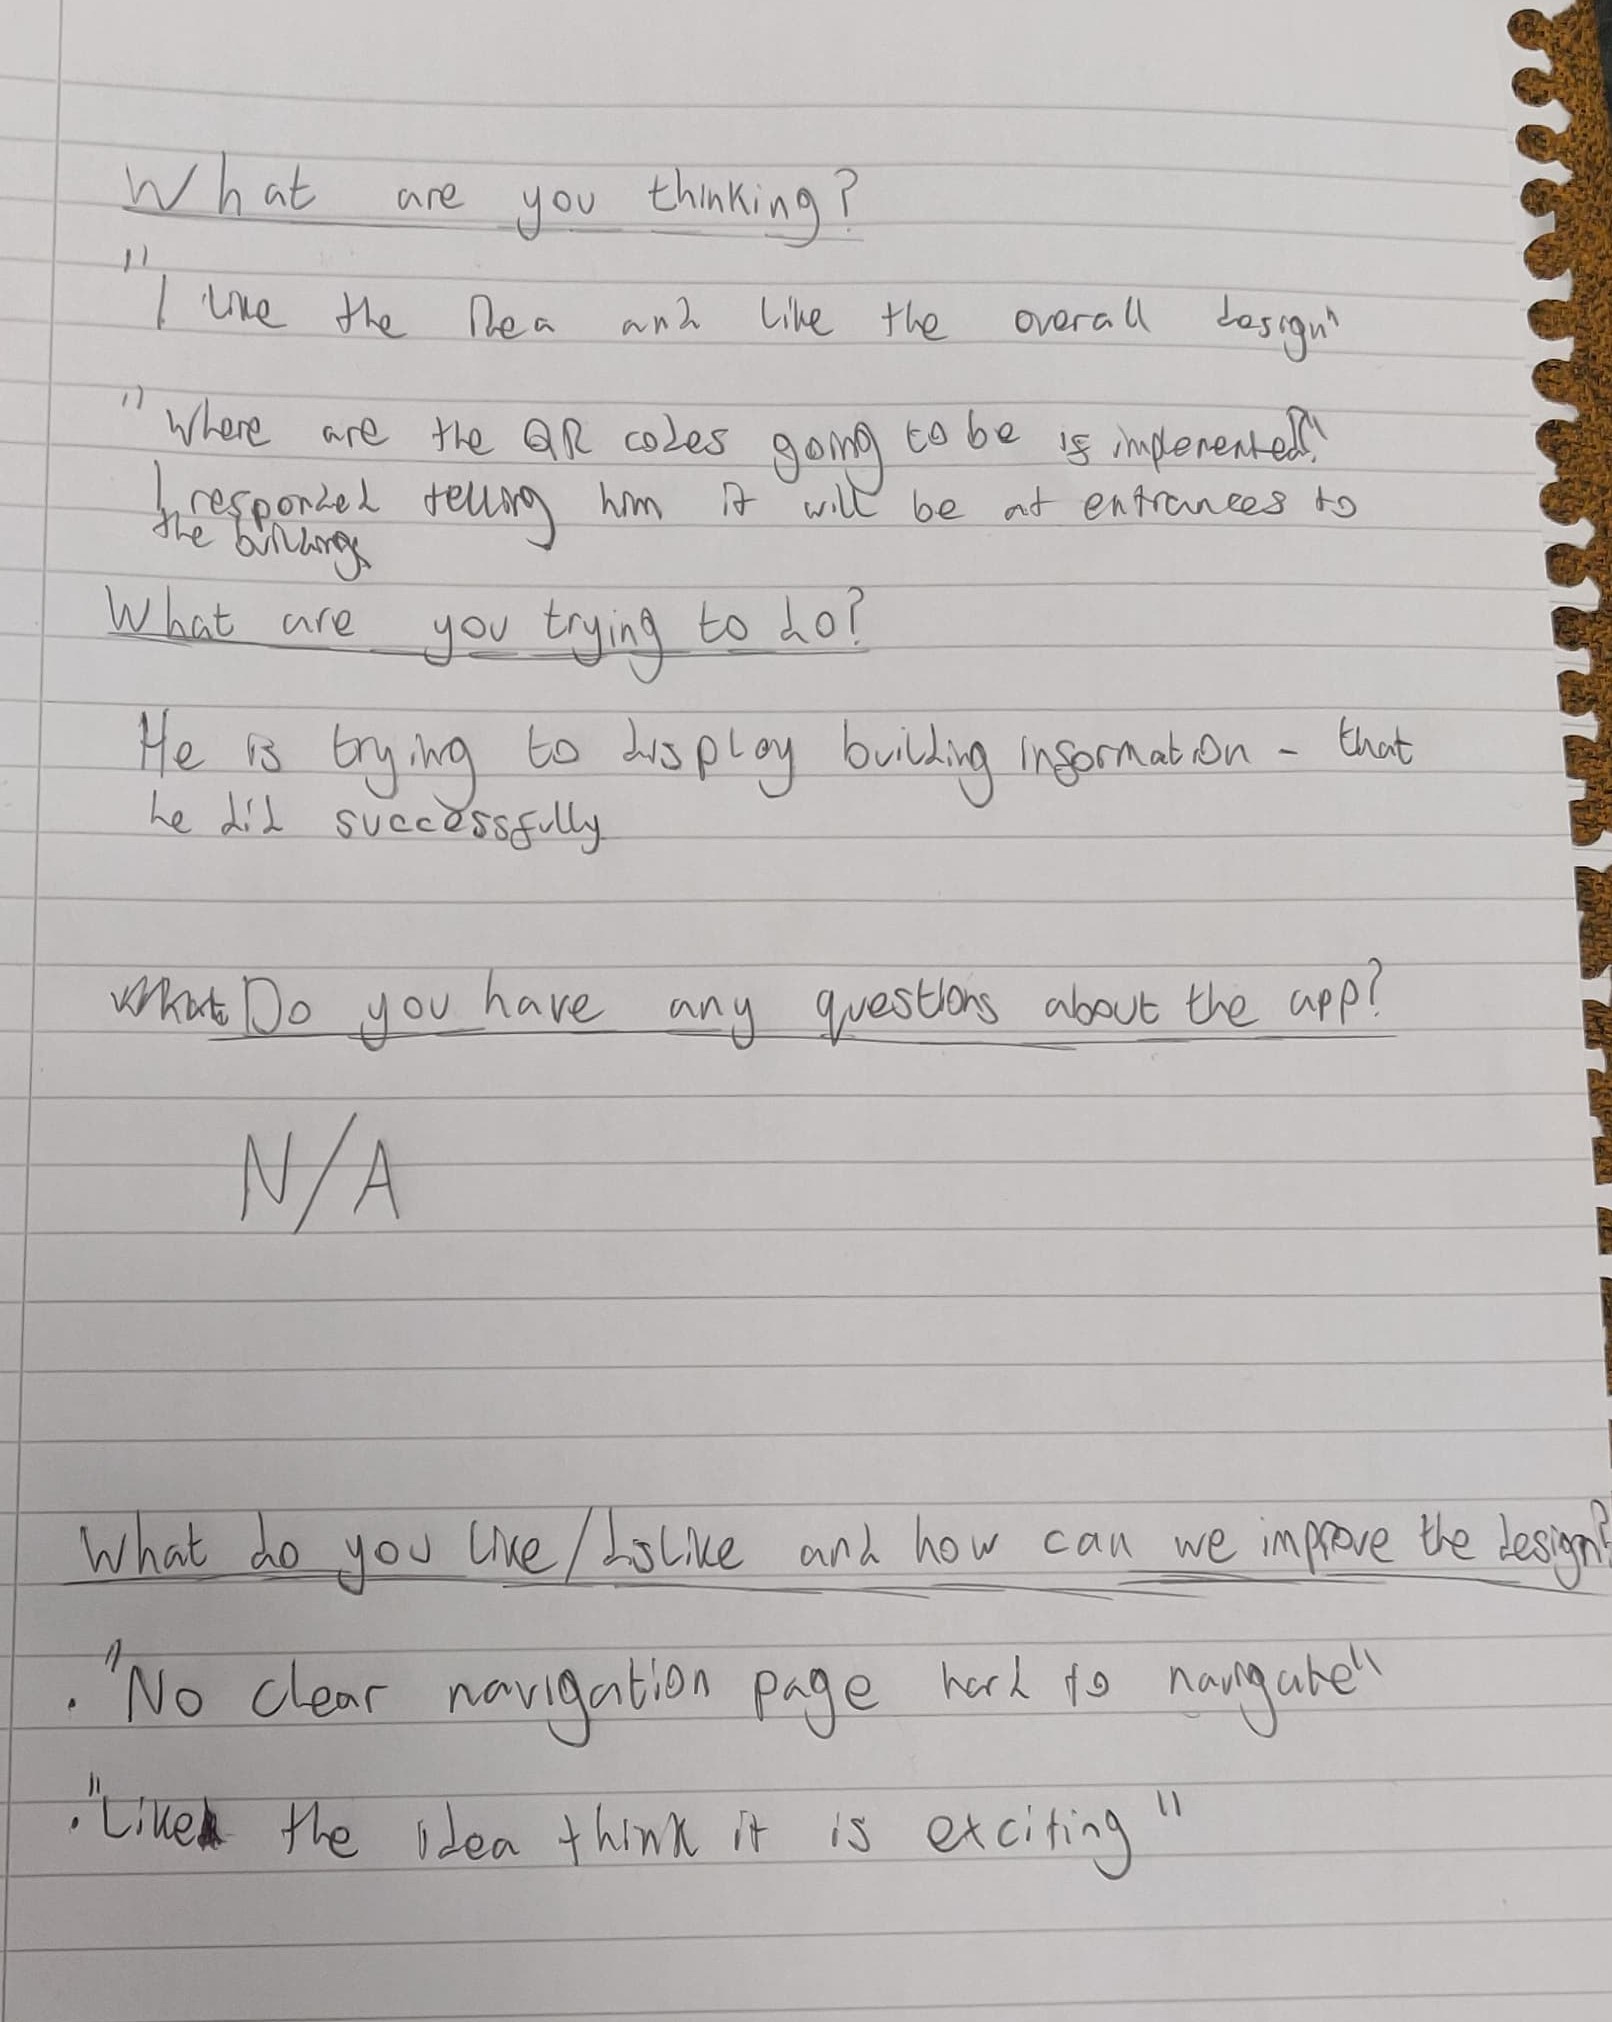 What are you thinking?
"I like the Idea and like the overall design"
"Where are the QR codes going to be is implemented?"
I responded telling him it will be at entrances to
the buildings
What are you trying to do?
He is trying to display building information - that
he did successfully
What Do you have any questions about the app?
N/A
What do you like/dislike and how can we improve the design?
. "No clear navigation page hard to navigate"
. "Like the idea think it is exciting"